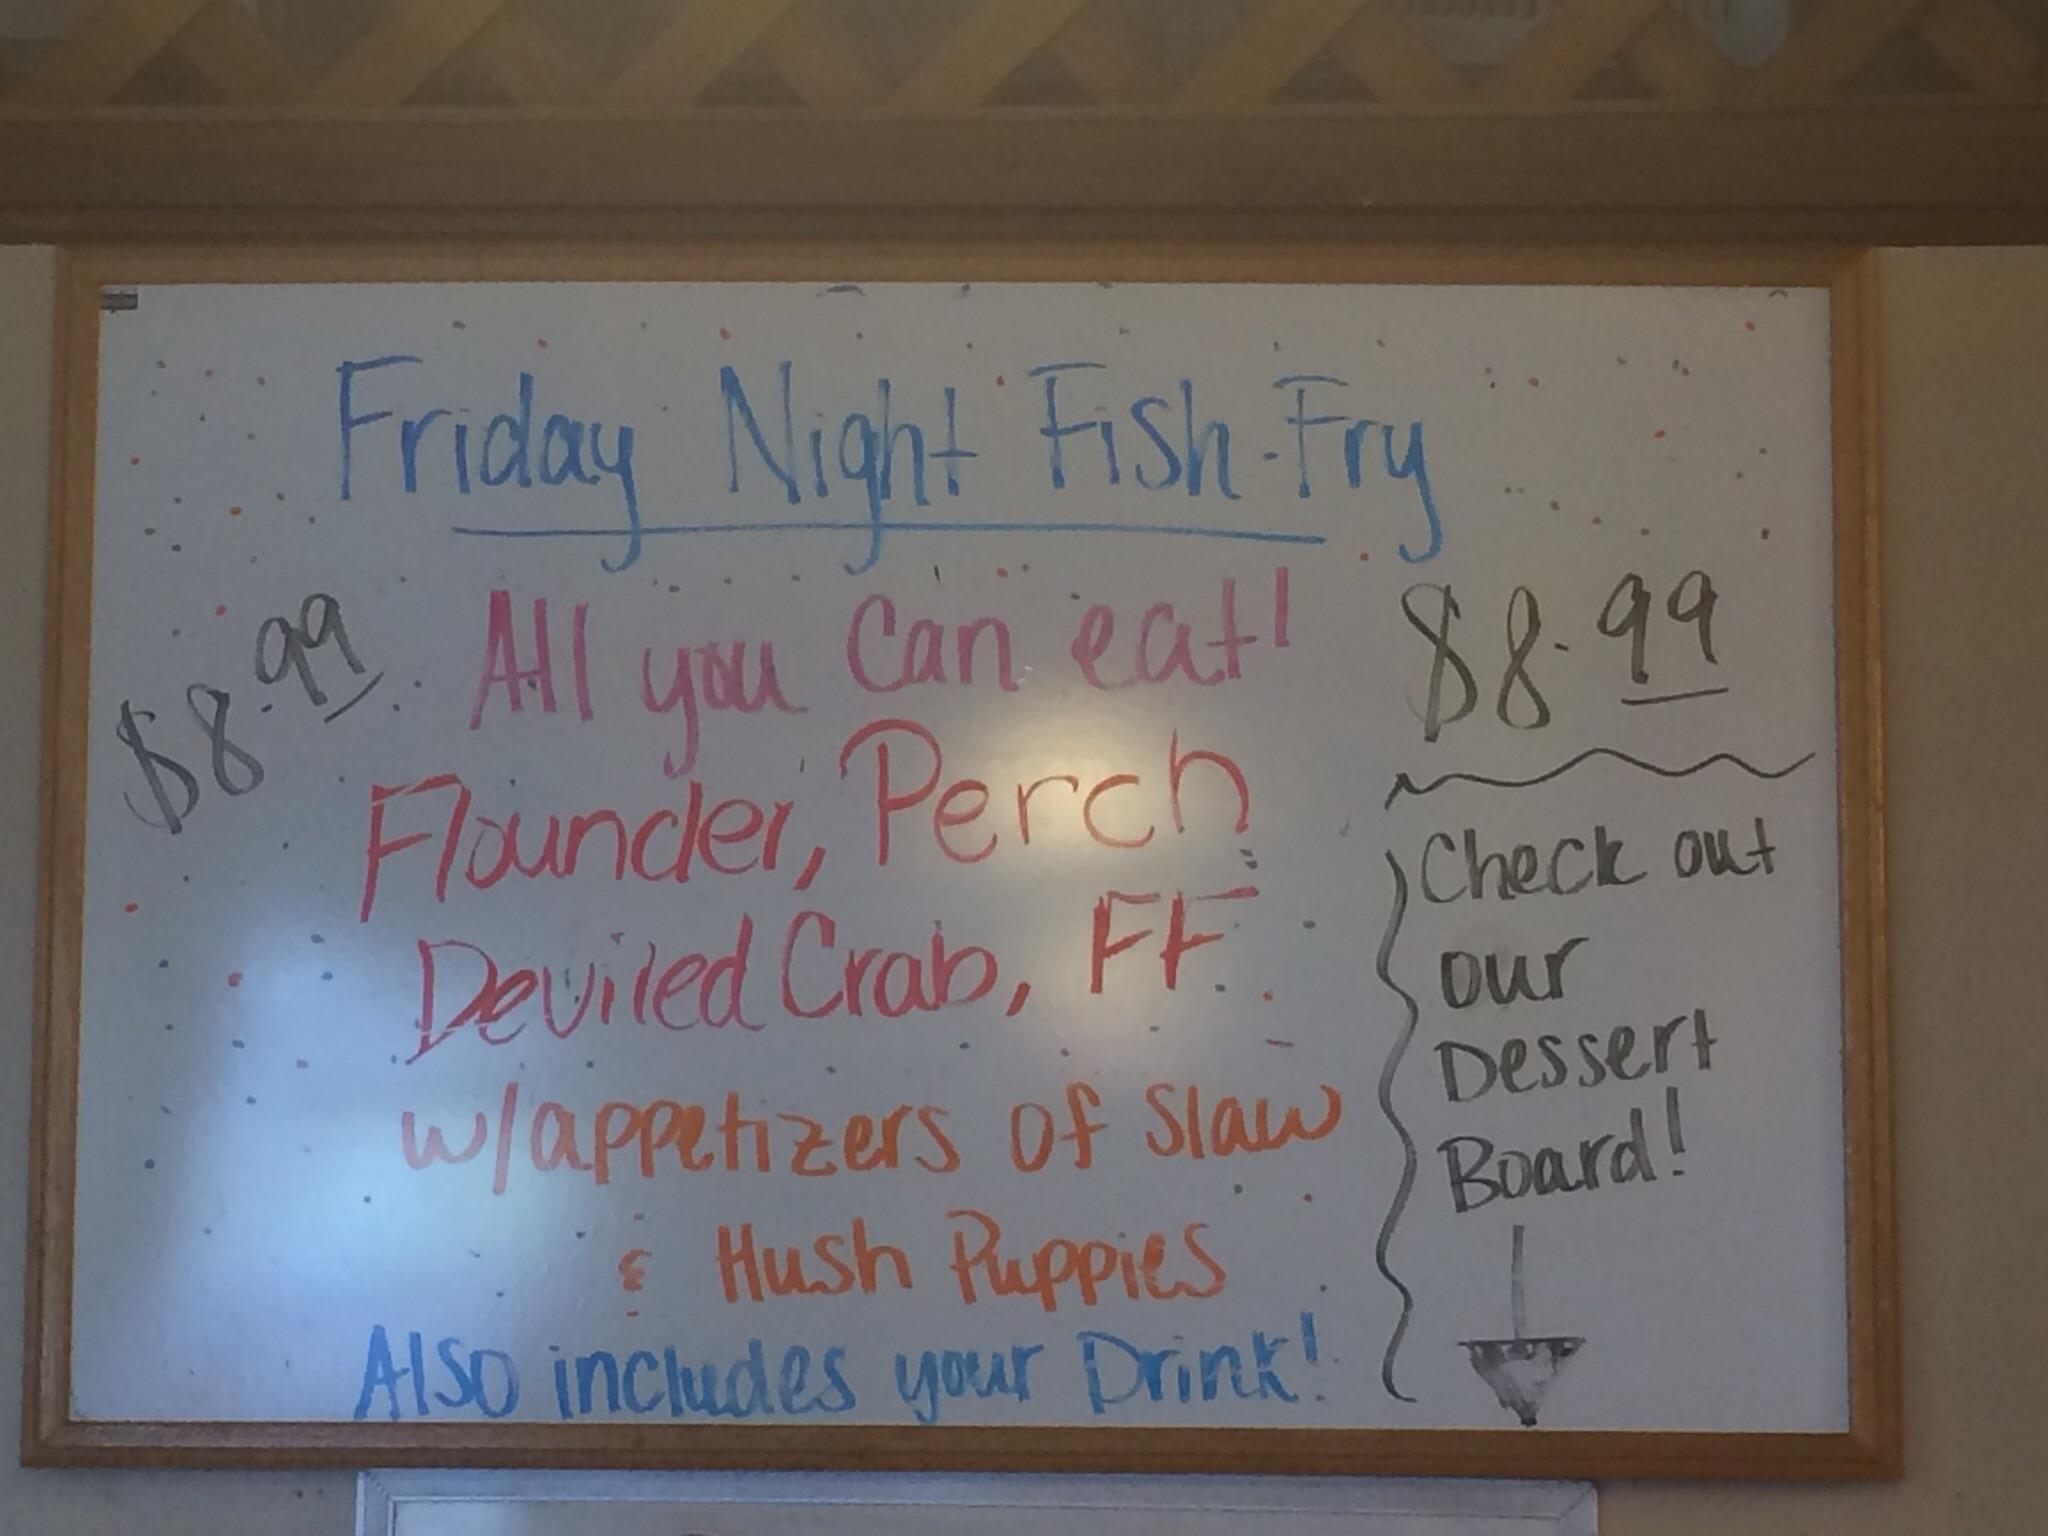 Friday Night Fish-Fry
$8.99
All you can eat!
$8.99
Flounder, Perch
Deviled Crab, FF
w/appetizers of slaw
& Hush Puppies
Also includes your Drink!
Check out
our
Dessert
Board!